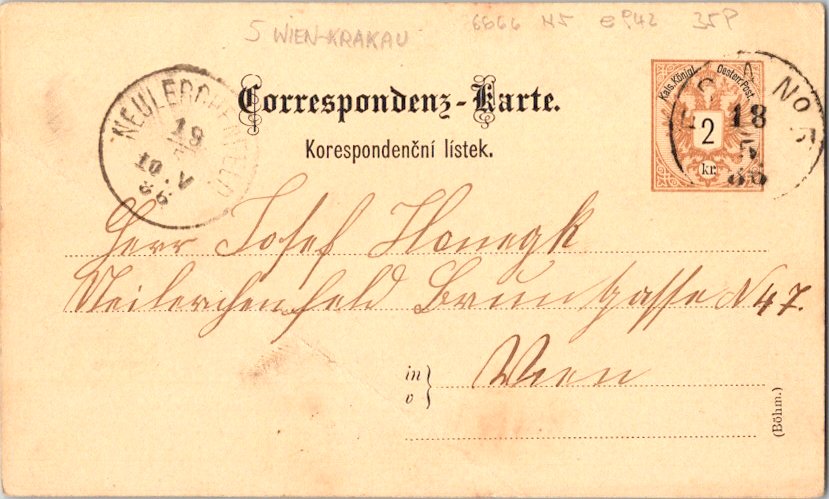 5 WIEN-KRAKAU
6666 N5 35P
Kais. Königl. Oesterr. Post.
2
kr.
18
5
86
NEULERCHENFELD
19
5
10.V
86
Correspondenz-Karte.
Korespondenční lístek.
Herr Josef Honegk
Neilerchenfeld Brungasse N 47.
in
v
Wien
(Böhm.)